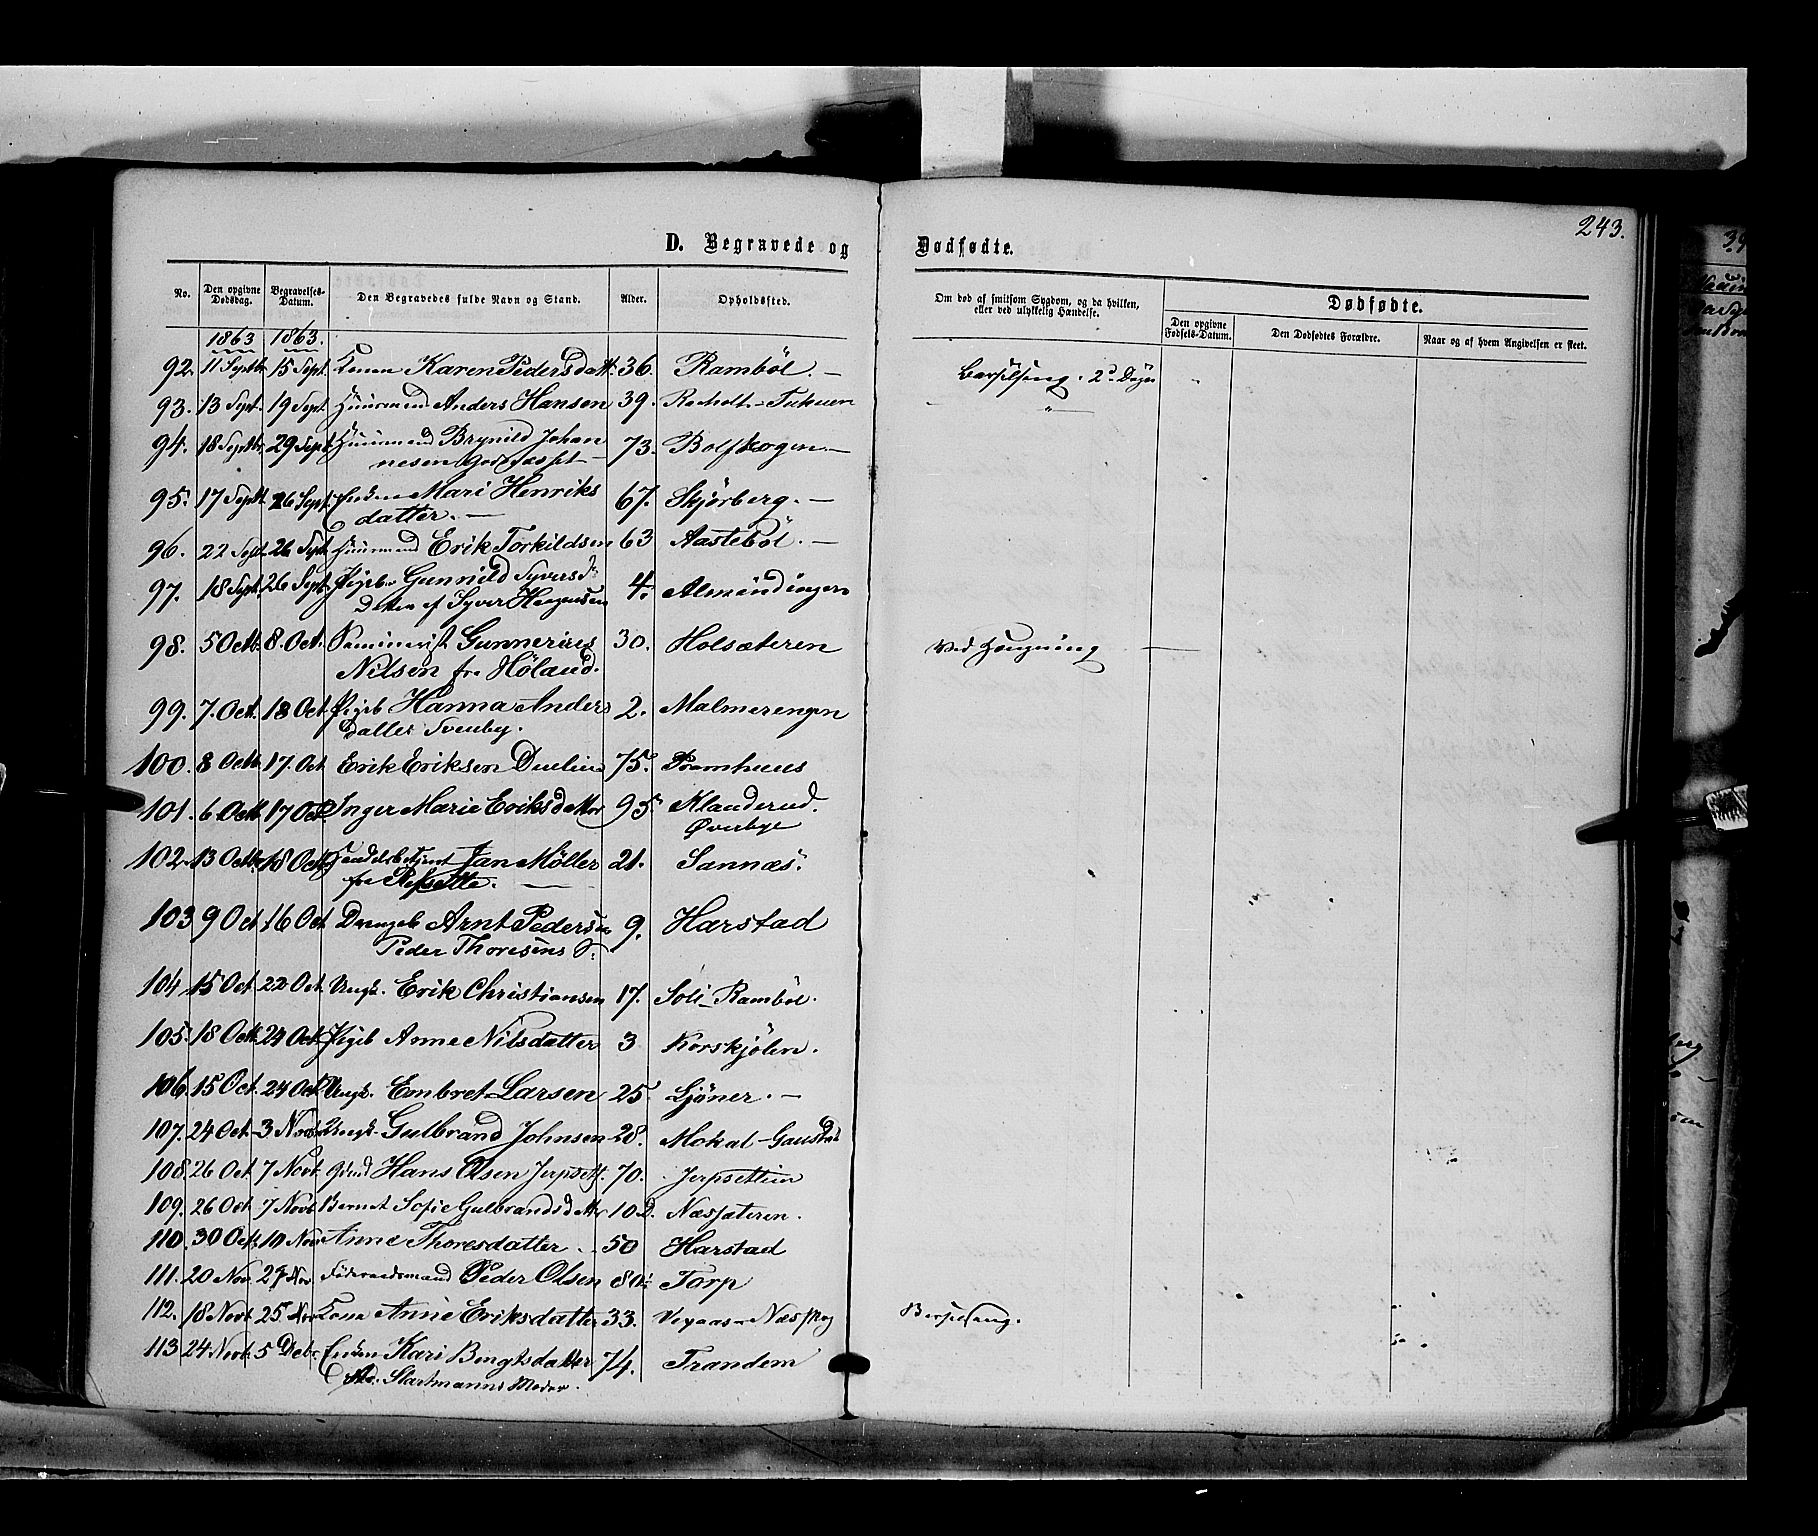 243.
D. Begravede og Dødfødte.
No. Den opgivne Dødsdag. Begravelses-Datum. Den Begravedes fulde Navn og Stand. Alder. Opholdssted. Om død af smitsom Sygdom, og da hvilken, eller ved ulykkelig Hændelse. Dødfødte.
Den opgivne Fødsels-Datum. Den Dødfødtes Forældre. Naar og af hvem Angivelsen er skeet.
1863 1863.
92. 11 Septbr 15 Sept. Konen Karen Pedersdatt. 36. Rambøl. — Barselseng. 2 Dage
93. 13 Sept. 19 Sept Huusmand Anders Hansen 39. Racholt - — " —
94. 18 Septbr 29 Sept. Huusmand Brynild Johan 73. Bolfskogen —
nesen
95. 17 Septb. 26 Sept. Enken Mari Henriks 67. Skjørberg. —
datter. —
96. 22 Sept. 26 Sept Huusmand Erik Torkildsen 63 Aastebøl. —
97. 18 Sept. 26 Sept. Pigeb. Gunnild Syversd: 4. Almindingen
Datter af Syver Haagensen
98. 5 Octb. 8. Oct. Seminarist Gunnerius 30. Holsæteren Ved Hængning —
Nilsen fra Høland.
99. 7. Oct. 18 Oct. Pigeb Hanna Anders 2. Malmerengen
datter Svenby.
100. 8 Octb. 17. Oct Erik Eriksen 75. Pramhuus
101. 6 Octb. 17 Oct Inger Marie Eriksdatter 95. Klanderud.
Øverbye
102. 13 Octbr. 18 Octb Handelsbetjent Jan Møller 21. Sannæs.
fra —
103 9 Oct 16 Oct Drengeb Arnt Pedersen 9. Harstad
Peder Thoresens S:
104 15 Oct 22 Oct. Ungk. Erik Christiansen 17. Soli - Rambøl.
105. 18 Octb. 24 Octb. Pigeb Anne Nilsdatter 3 Korskjølen.
106. 15 Oct. 24 Oct Ungk. Embret Larsen 25. Ljøner. —
107. 24 Oct. 3 Novb. Ungk. Gulbrand Johnsen 28. Mokal - Gaustad
108. 26 Oct 7 Novb. Gmd Hans Olsen Jerpsett. 70. Jerpsettim
109. 26 Oct. 7 Novb Barnet Sofie Gulbrandsdatter 10 D. Næssæteren.
110. 30 Octb. 10 Nov Anne Thoresdatter . . 50 Harstad
111. 20 Nov. 27 Nov. Føderaadsmand Peder Olsen 80. Torp
112. 18 Novb. 25. Nov Kone Anne Eriksdatter 33. Vegaas - Næsskog Barselseng.
113 24 Novb. 5 Debr. Enken Kari Bengtsdatter 74. Trandem
Moder.